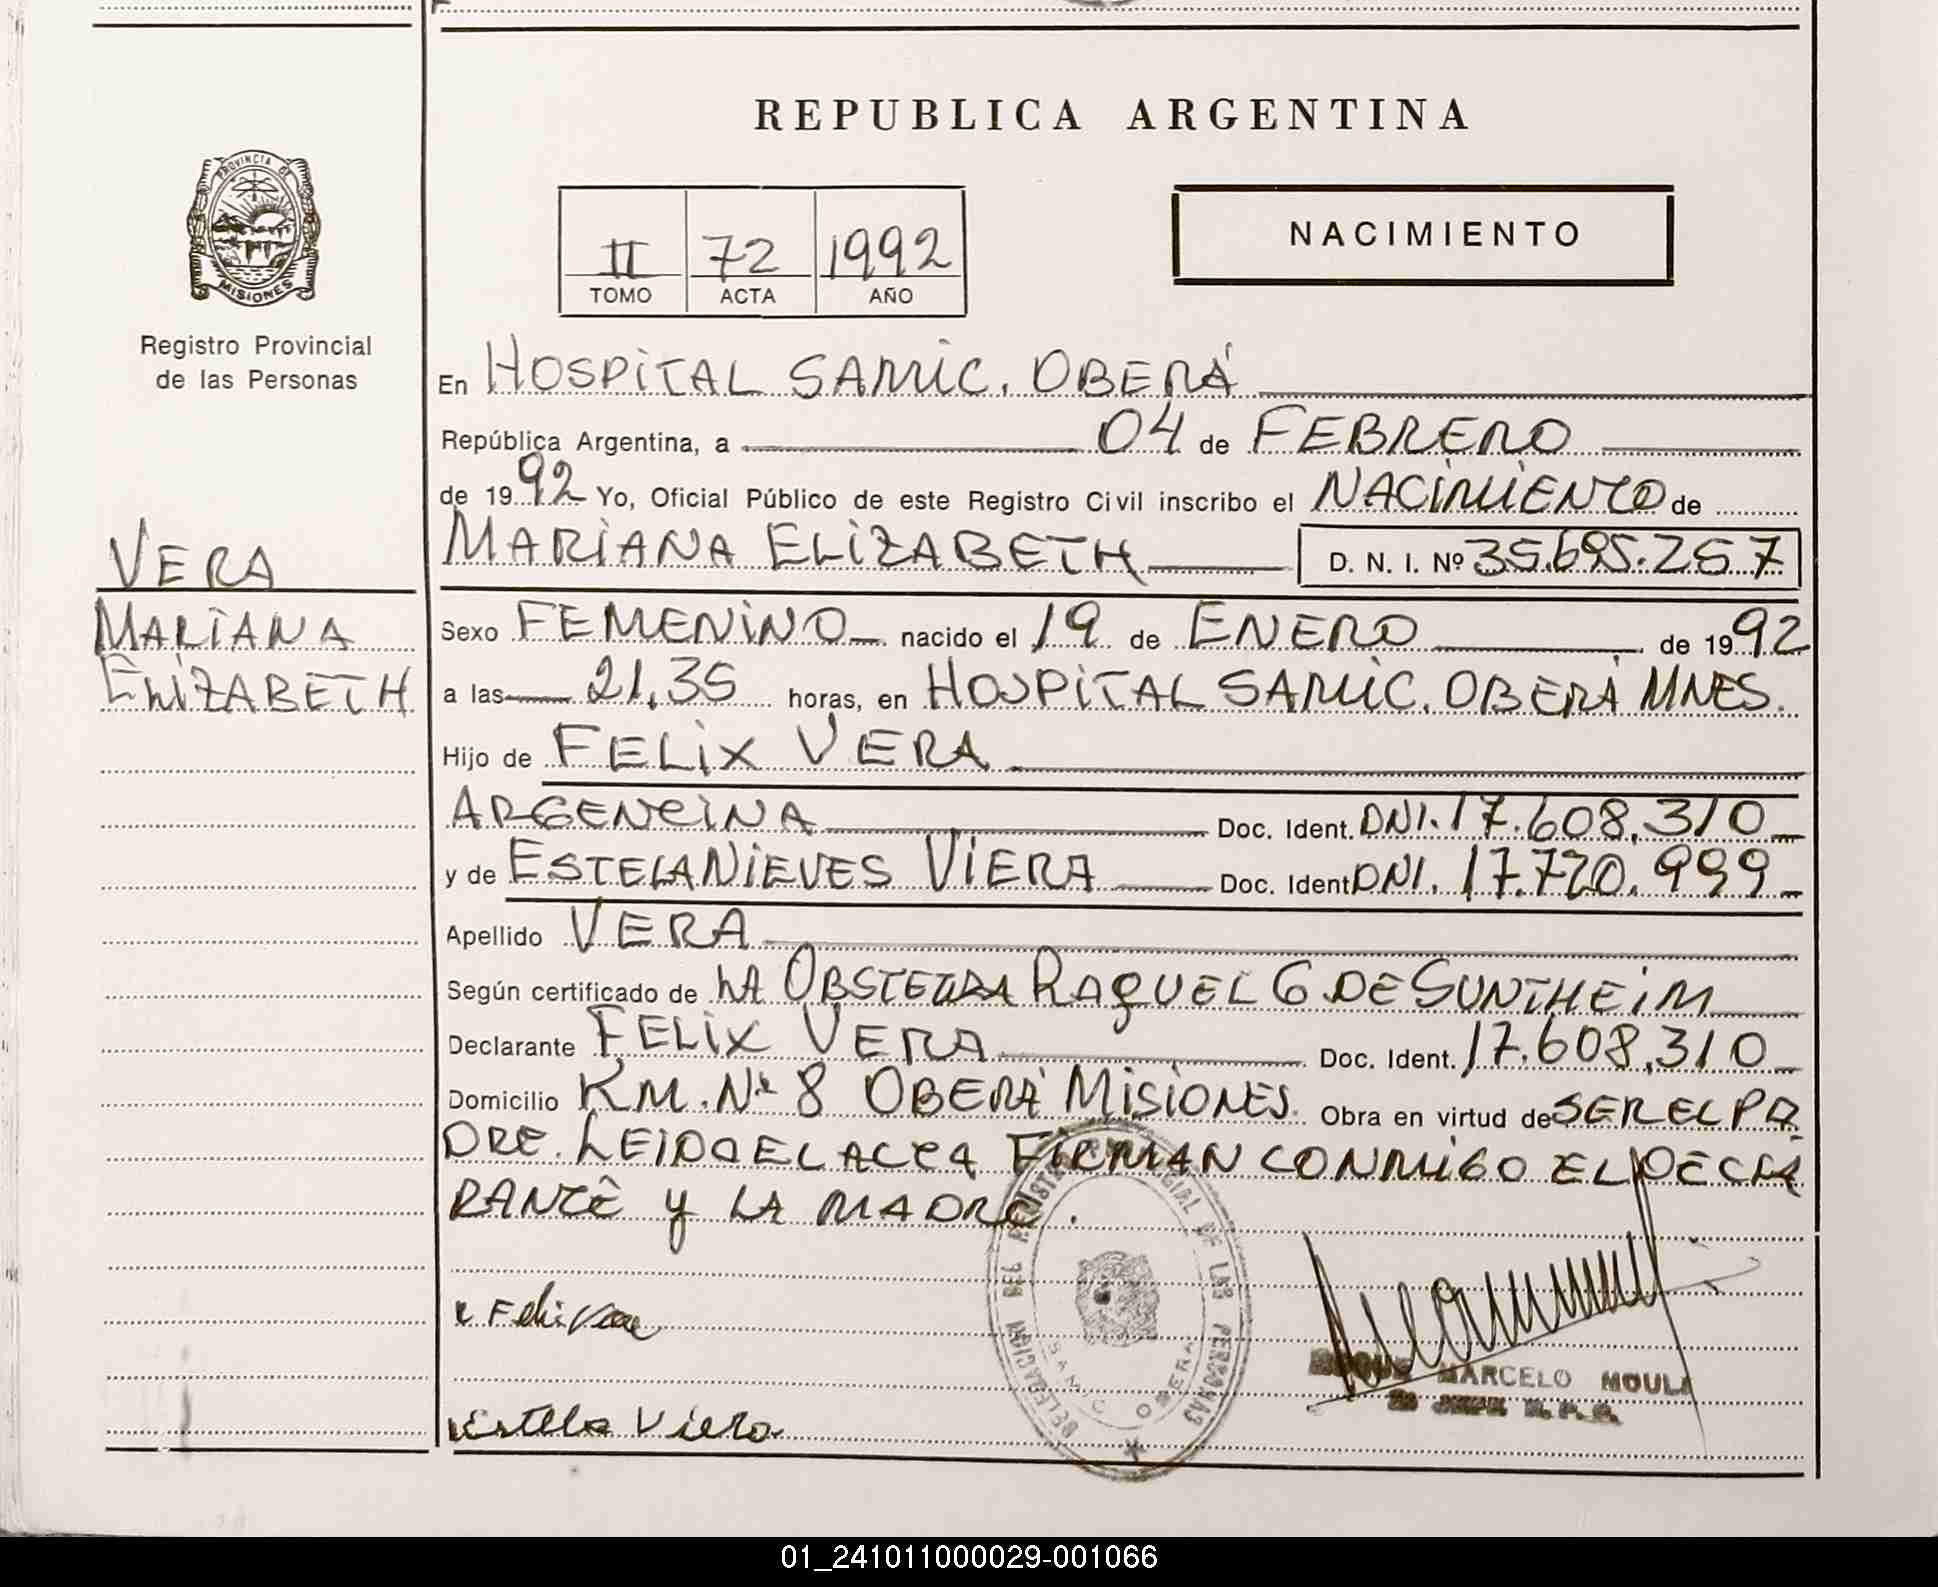 REPUBLICA ARGENTINA
PROVINCIA DE
MISIONES
Registro Provincial
de las Personas
II 72 1992
TOMO ACTA AÑO
NACIMIENTO
En HOSPITAL SAMIC. OBERÁ
República Argentina, a 04 de FEBRERO
de 1992 Yo, Oficial Público de este Registro Civil inscribo el NACIMIENTO de
MARIANA ELIZABETH D. N. I. Nº 35.695.257
VERA
MARIANA
ELIZABETH
Sexo FEMENINO nacido el 19 de ENERO de 1992
a las 21,35 horas, en HOSPITAL SAMIC. OBERÁ MNES.
Hijo de FELIX VERA
ARGENTINA Doc. Ident. DNI. 17.608.310
y de ESTELA NIEVES VIERA Doc. Ident DNI. 17.720.999
Apellido VERA
Según certificado de LA OBSTETRA RAQUEL G DE SUNTHEIM
Declarante FELIX VERA Doc. Ident. 17.608.310
Domicilio KM. Nº 8 OBERÁ MISIONES. Obra en virtud de SER EL PA
DRE. LEIDO EL ACTA FIRMAN CONMIGO EL DECLA
RANTE Y LA MADRE.
DELEGACION DEL REGISTRO PROVINCIAL DE LAS PERSONAS
SAMIC OBERA
Felix Vera
ROQUE MARCELO MOULA
Estela Viera
01_241011000029-001066